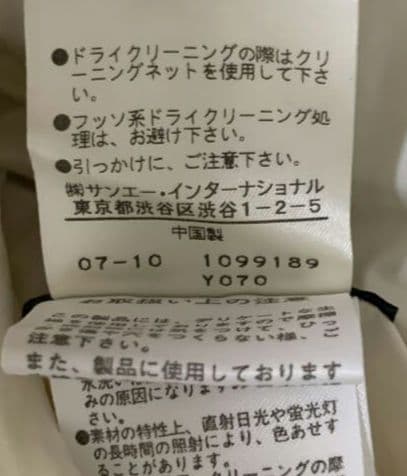 ●ドライクリーニングの際はクリ
ーニングネットを使用して下さ
い。
●フッソ系ドライクリーニング処
理は、お避け下さい。
●引っかけに、ご注意下さい。
㈱サンエー・インターナショナル
東京都渋谷区渋谷1-2-5
中国製
07-10 1099189
Y070
お取扱い上の注意
この製品には、デリケートな
注意下さい。
また、製品に使用しております
みの原因になりますの
さい。
●素材の特性上、直射日光や蛍光灯
の長時間の照射により、色あせす
ることがあります。
クリーニングの際